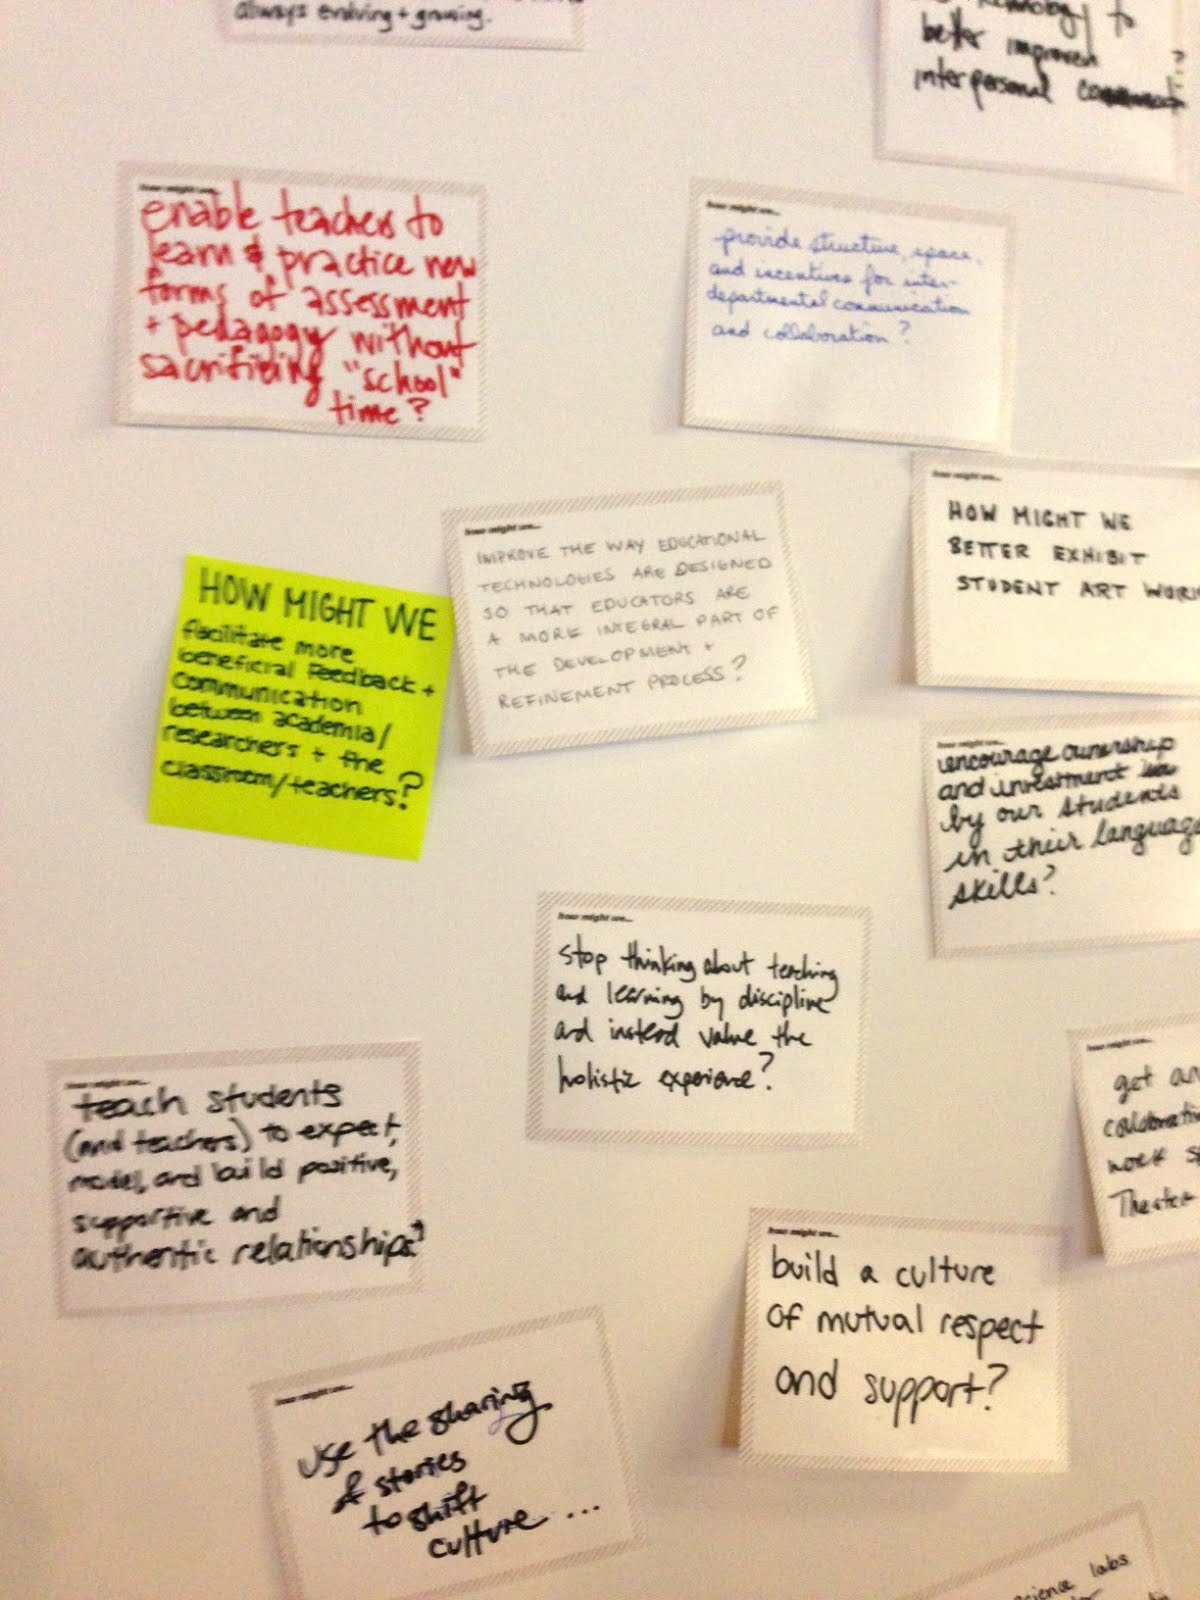 always evolving + growing.
to
better improven
interpersonal
?
how might we...
enable teachers to
learn & practice new
forms of assessment
+ pedagogy without
sacrificing "school"
time?
how might we...
provide structure, space,
and incentives for inter-
departmental communication
and collaboration?
how might we...
IMPROVE THE WAY EDUCATIONAL
TECHNOLOGIES ARE DESIGNED
SO THAT EDUCATORS ARE
A MORE INTEGRAL PART OF
THE DEVELOPMENT +
REFINEMENT PROCESS?
how might we...
HOW MIGHT WE
BETTER EXHIBIT
STUDENT ART WORK
HOW MIGHT WE
facilitate more
beneficial feedback +
communication
between academia/
researchers + the
classroom/teachers?
how might we...
encourage ownership
and investment
by our students
in their language
skills?
how might we...
stop thinking about teaching
and learning by discipline
and instead value the
holistic experience?
how might we...
get
work
Theater
how might we...
teach students
(and teachers) to expect,
model, and build positive,
supportive and
authentic relationships?
how might we...
build a culture
of mutual respect
and support?
how might we...
use the sharing
of stories
to shift
culture ...
labs